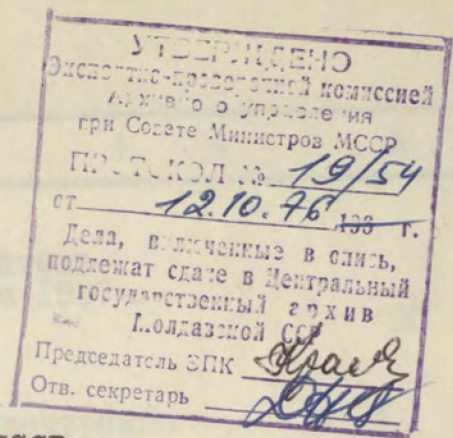 УТВЕРЖДЕНО
Экспертно-проверочной комиссией
Архивного управления
при Совете Министров МССР
ПРОТОКОЛ № 19/54
от 12.10.76 198 г.
Дела, включенные в опись,
подлежат сдаче в Центральный
государственный архив
Молдавской ССР
Председатель ЭПК
Отв. секретарь